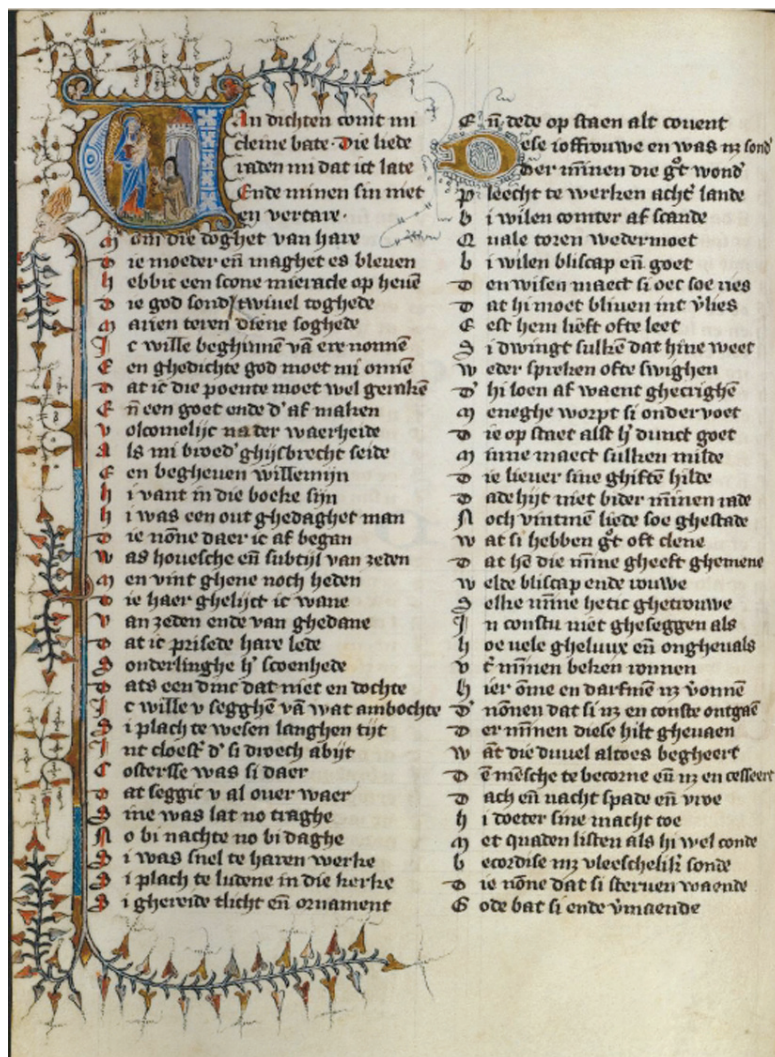 Van dichten comt mi
cleine bate · Die liede
raden mi dat ict late
Ende minen sin niet
en vertare ·
M om die doghet van hare
D ie moeder en̄ maghet es bleven
H ebbic een scone mieracle op hevē
D ie god sond' twivel toghede
M arien teren diene soghede
I c wille beghinnē vā ere nonnē
E en ghedichte god moet mi onnē
D at ic die poente moet wel gerakē
E n̄ een goet ende d' af maken
V olcomelijc na der waerheide
A ls mi broed' ghijsbrecht seide
E en begheven willemijn
H i vant in die boeke sijn
H i was een out ghedaghet man
D ie nōne daer ic af began
W as hovesche en̄ subtijl van zeden
M en vint ghene noch heden
D ie haer ghelijct ic wane
V an zeden ende van ghedane
D at ic prisede hare lede
S onderlinghe h' scoenhede
D ats een dinc dat niet en dochte
I c wille v segghē vā wat ambochte
S i plach te wesen langhen tijt
I nt cloest' d' si droech abijt
C osterse was si daer
D at seggic v al over waer
S ine was lat no traghe
N o bi nachte no bi daghe
S i was snel te haren werke
S i plach te ludene in die kerke
S i ghereide tlicht en̄ ornament
E n̄ dede op staen alt covent
Dese ioffrouwe en was nz sond'
Der mīnen die g°t wond'
P leecht te werken acht' lande
B i wilen comter af scande
Q uale toren wedermoet
B i wilen bliscap en̄ goet
D en wisen maect si oec soe ries
D at hi moet bliven int v'lies
E est hem lieft ofte leet
S i dwingt sulkē dat hine weet
W eder spreken ofte swighen
D' hi loen af waent ghecrighē
M eneghe worpt si onder voet
D ie op staet alst h' dunct goet
M inne maect sulken milde
D ie liever sine ghiftē hilde
D ade hijt niet bider mīnen rade
N och vintmē liede soe ghestade
W at si hebben g°t oft clene
D at hē die mīne gheeft ghemene
W elde bliscap ende rouwe
S elke mīne hetic ghetrouwe
I n constu niet gheseggen als
H oe vele gheluux en̄ ongheuals
V t' mīnen beken ronnen
H ier ōme en darfmē nz v'onnē
D' nōnen dat si nz en conste ontgaē
D er mīnen diese hilt ghevaen
W āt die duvel altoes begheert
D ē mēsche te becorne en̄ nz en cesseert
D ach en̄ nacht spade en̄ vroe
H i doeter sine macht toe
M et quaden listen als hi wel conde
B ecordise mz vleescheliker sonde
D ie nōne dat si sterven waende
G ode bat si ende v'maende